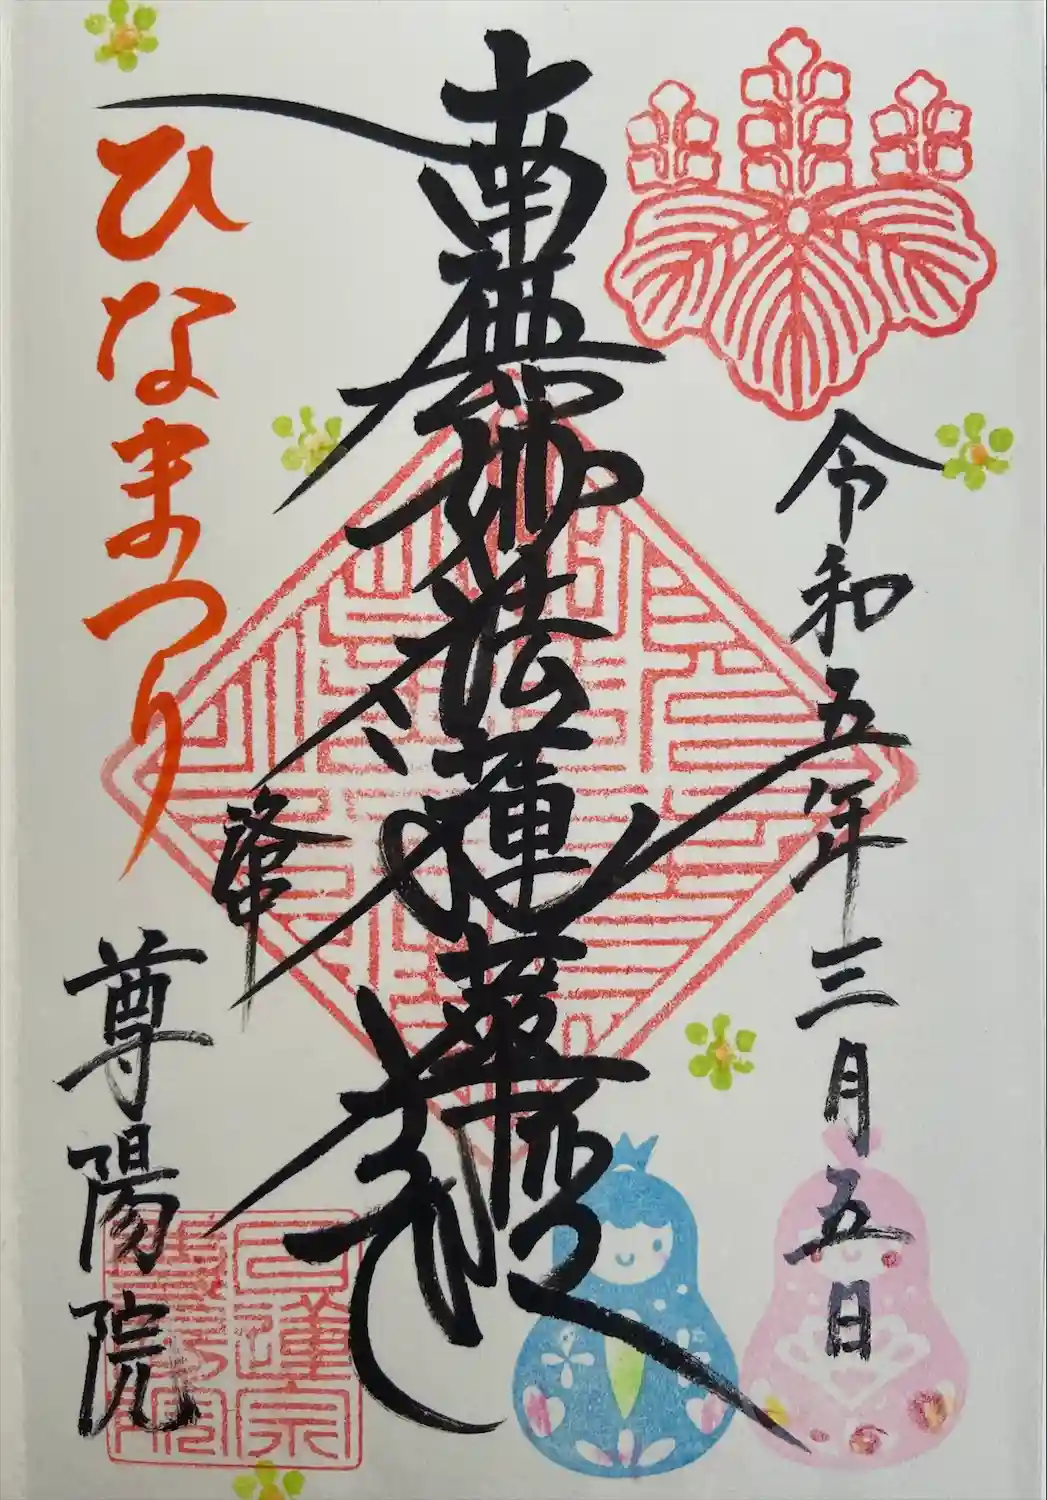 令和五年三月五日
南無妙法蓮華経
ひなまつり
尊陽院
日蓮宗